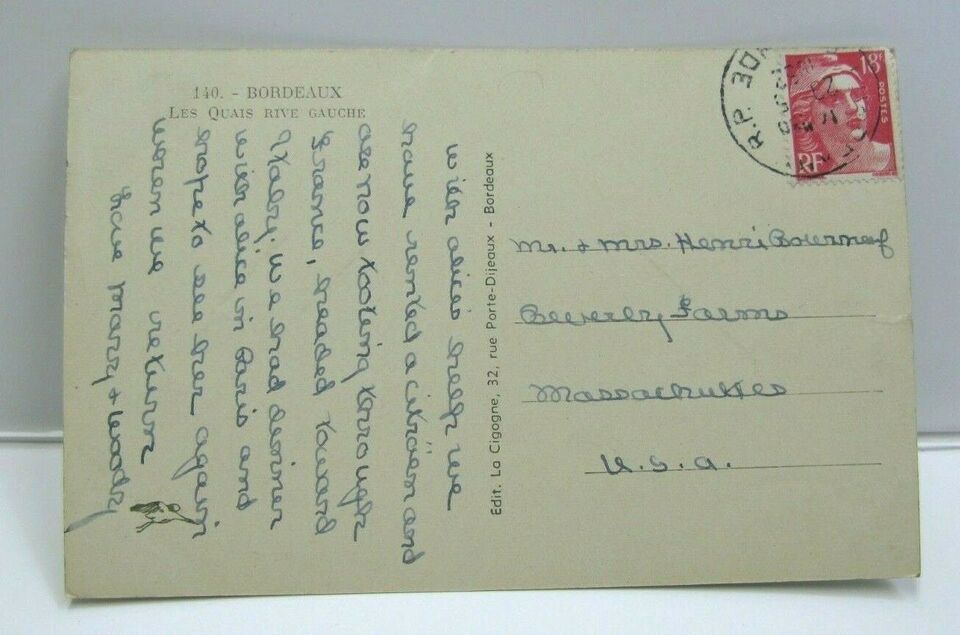 140. - BORDEAUX
LES QUAIS RIVE GAUCHE
with alices help we
have rented a citröen and
are now tooting through
France, headed toward
Italy. We had dinner
with alice in Paris and
hope to see her again
when we return
Love Harry + Woody
Edit. La Cigogne, 32, rue Porte-Dijeaux - Bordeaux
18F
POSTES
RF
R.P.
Mr. + Mrs. Henri Bourneuf
Beverly Farms
Massachuttes
U.S.A.